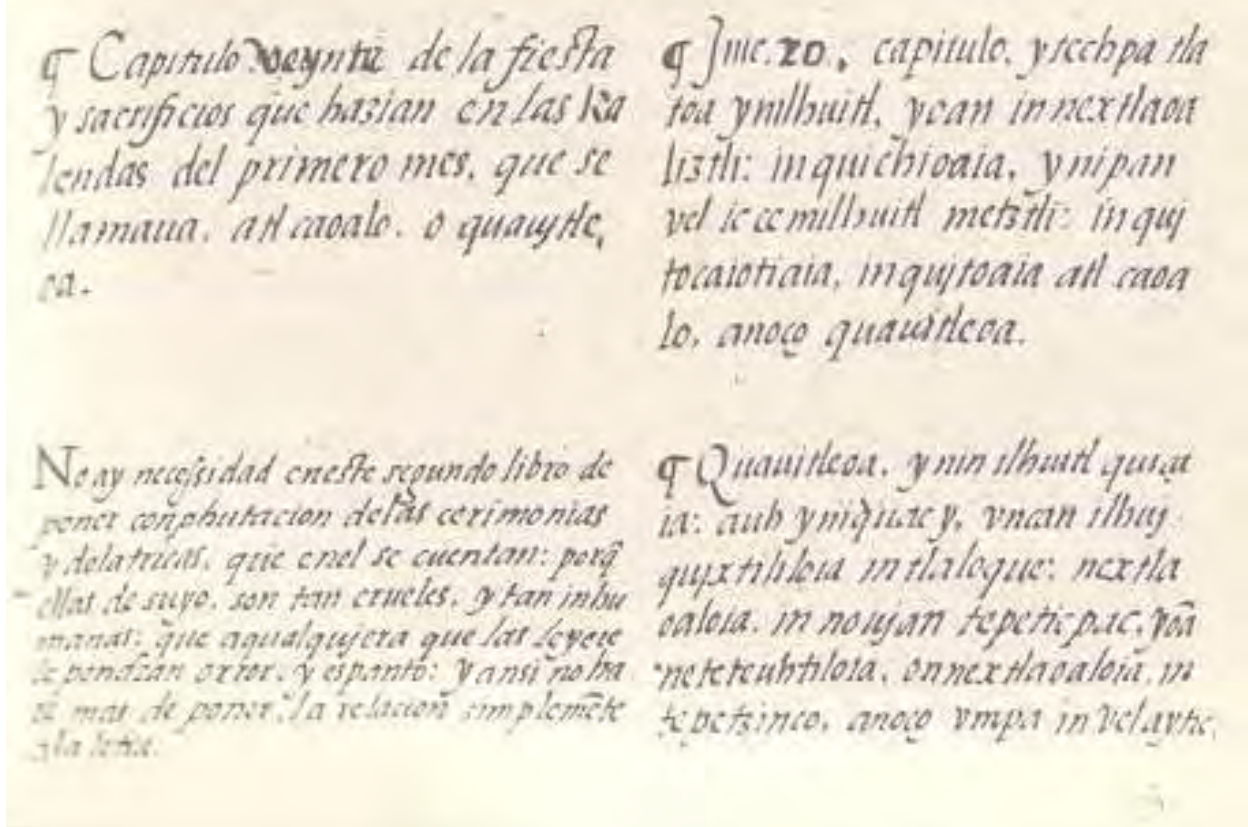 ¶ Capitulo. veynte de la fiesta
y sacrificios que hazian en las ka
lendas del primero mes, que se
llamaua. atl caoalo. o quauytle,
oa.
No ay necessidad eneste segundo libro de
poner cōñphutacion delas cerimonias
y dolatricas, que enel se cuentan: porq̄
ellas de suyo. son tan crueles. y tan inhu
manas: que aqualqujera que las leyere
le pondran orror. y espanto: y ansi no ha
re mas de poner, la relacion simplemēte
ala letra.
¶ Jnic.20., capitulo. ytechpa tla
toa ynilhuitl, yoan in nextlaoa
liztli: in quichioaia, ynipan
vel ic cemilhuitl metztli: in quj
tocaiotiaia, in qujtoaia atl caoa
lo, anoço quauitleoa.
¶ Quauitleoa. ynin ilhuitl quiça
ia: auh yniquac y, vncan ilhuj
qujxtililoia in tlaloque: nextla
oaloia. in noujan tepeticpac, yoā
neteteuhtiloia. onnextlaoaloia. in
tepetzinco, anoço vmpa in vel aytic.